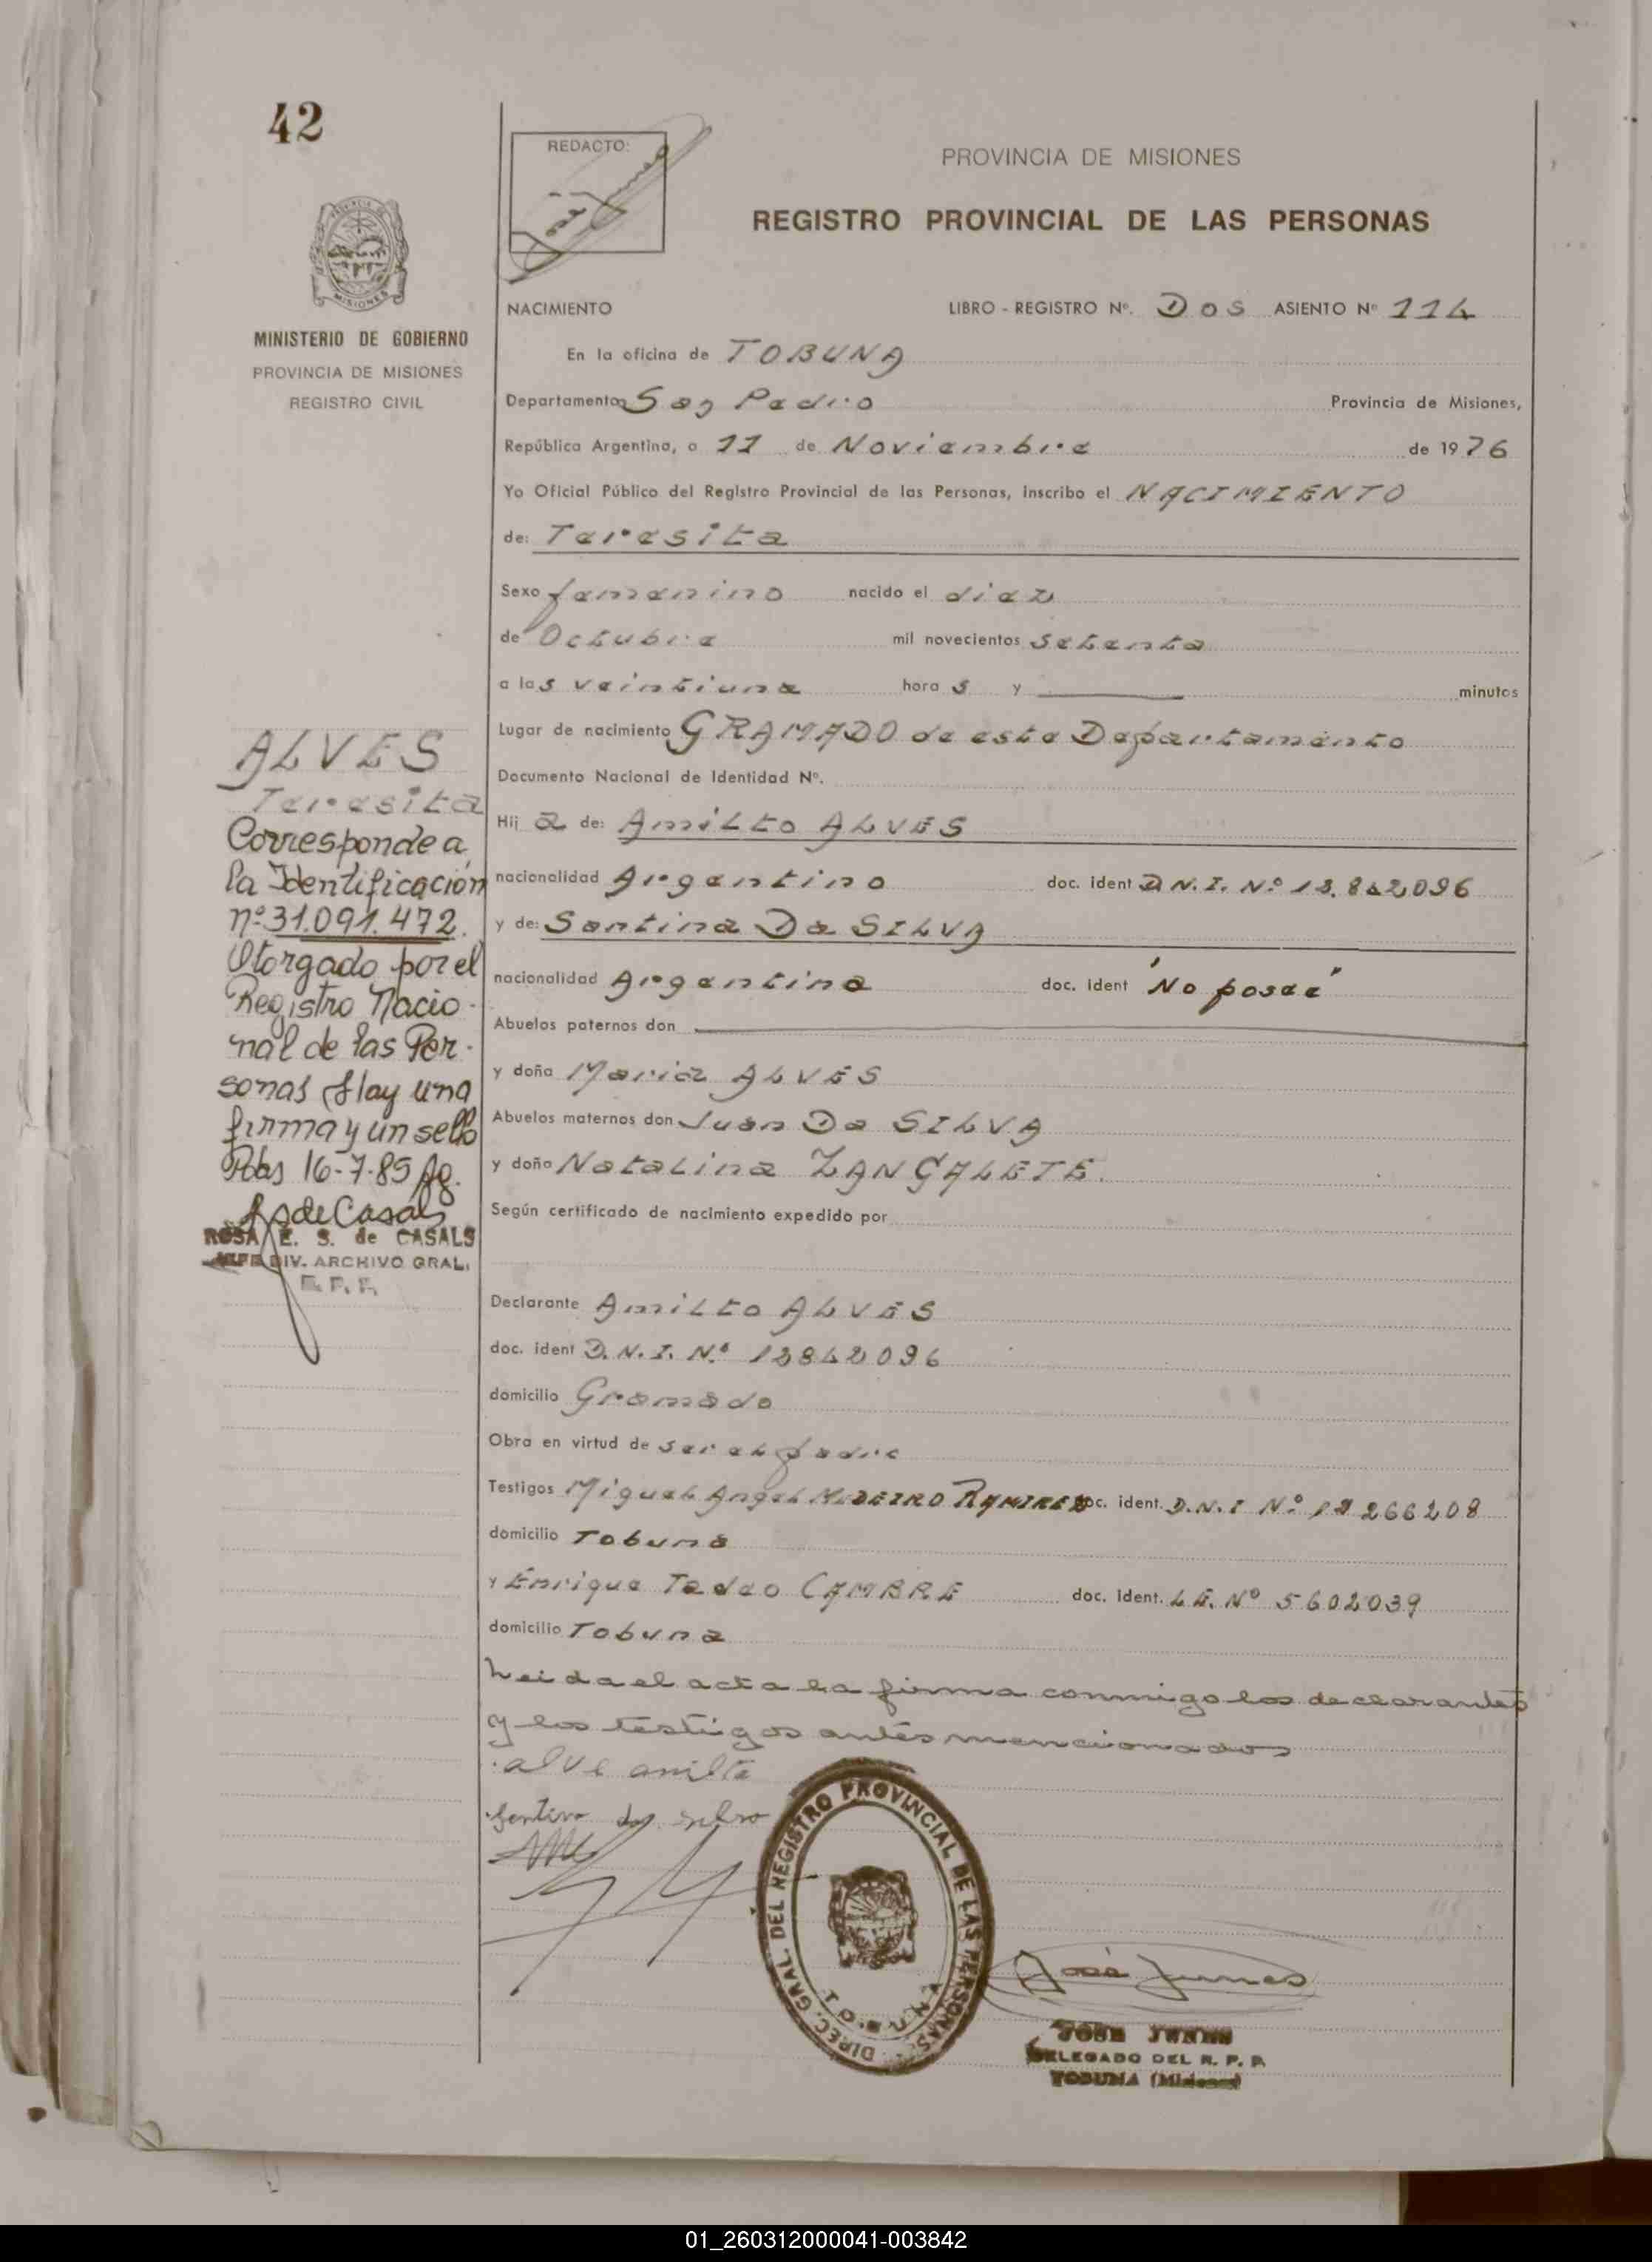 42
REDACTO:
PROVINCIA DE MISIONES
REGISTRO PROVINCIAL DE LAS PERSONAS
MISIONES
MINISTERIO DE GOBIERNO
PROVINCIA DE MISIONES
REGISTRO CIVIL
NACIMIENTO LIBRO - REGISTRO Nº. DOS ASIENTO Nº 114
En la oficina de TOBUNA
Departamento San Pedro Provincia de Misiones,
República Argentina, a 11 de Noviembre de 1976
Yo Oficial Público del Registro Provincial de las Personas, inscribo el NACIMIENTO
de: Teresita
Sexo femenino nacido el diez
de Octubre mil novecientos setenta
a las veintiuna hora s y minutos
Lugar de nacimiento GRAMADO de este Departamento
Documento Nacional de Identidad Nº.
Hij a de: Amilto ALVES
nacionalidad Argentino doc. ident D.N.I. Nº
y de: Santina Da SILVA
nacionalidad Argentina doc. ident "No posee"
Abuelos paternos don
y doña Maria ALVES
Abuelos maternos don Juan Da SILVA
y doña Natalina
Según certificado de nacimiento expedido por
Declarante Amilto ALVES
doc. ident D.N.I. Nº
domicilio Gramado
Obra en virtud de ser el padre
Testigos Miguel Angel RAMIREZ doc. ident. D.N.I Nº
domicilio Tobuna
y Enrique Tadeo CAMBRE doc. ident. L.E. Nº 5602039
domicilio Tobuna
Leida el acta la firma conmigo los declarantes
y los testigos antes mencionados
alve amilto
ALVES
Teresita
Corresponde a
la Identificación
nº 31.091.472.
Otorgado por el
Registro Nacio-
nal de las Per-
sonas Hay una
firma y un sello
Pdas 16-7-85
RsdeCasals
ROSA E. S. de CASALS
JEFE DIV. ARCHIVO GRAL.
DIREC. GRAL. DEL REGISTRO PROVINCIAL DE LAS PERSONAS
TOBUNA
José Junes
JOSE JUNES
DELEGADO DEL R. P. P.
TOBUNA (Misiones)
01_260312000041-003842